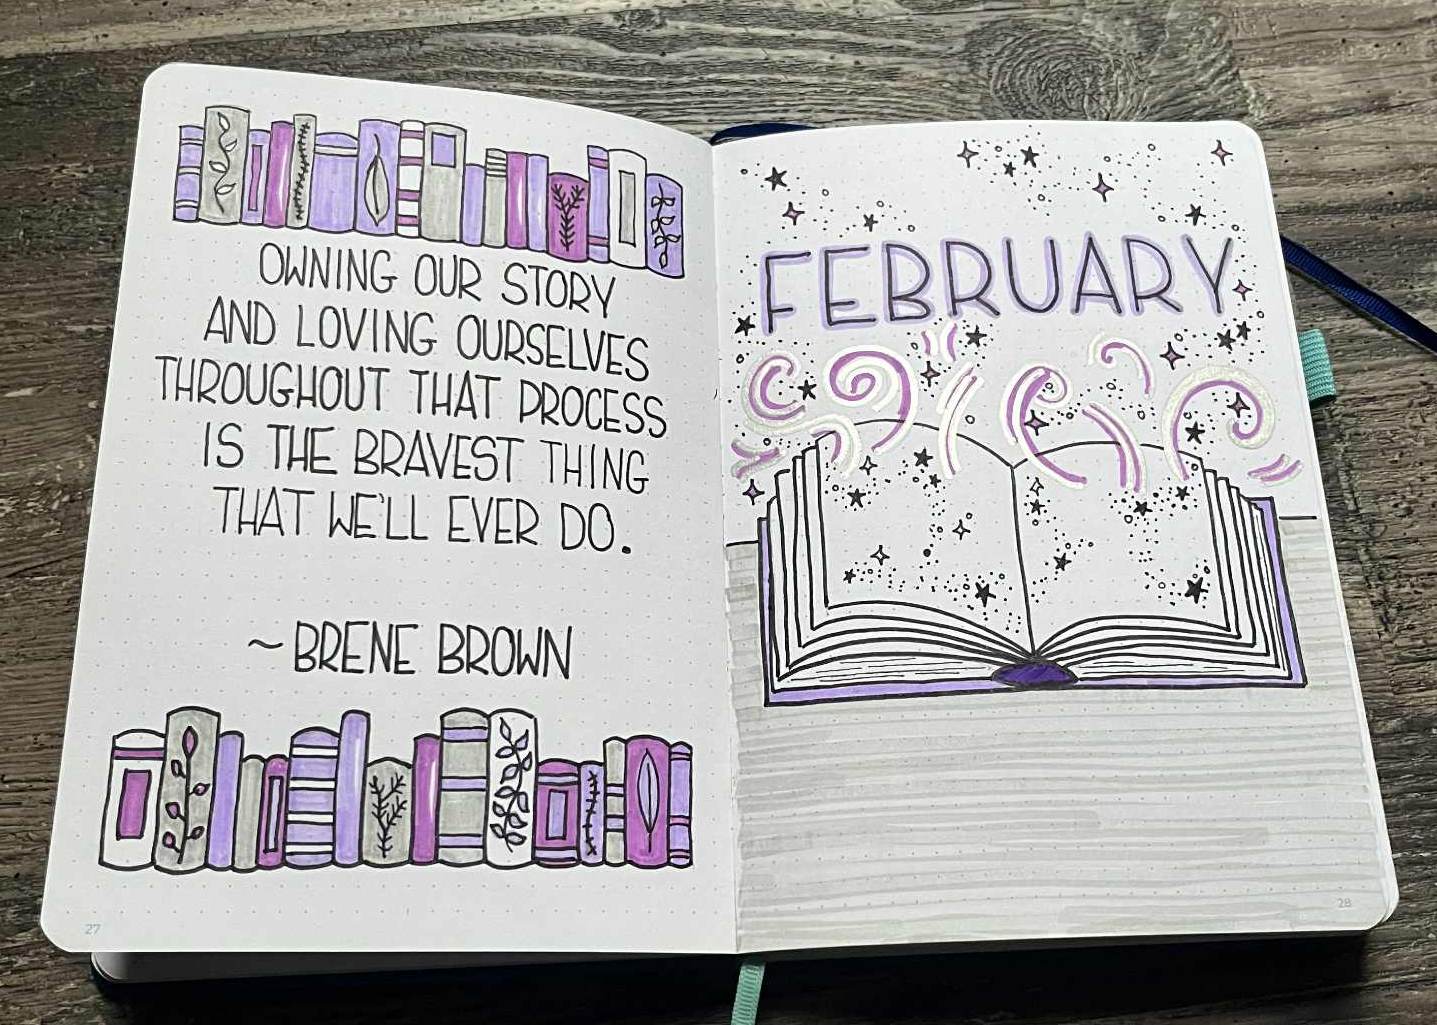 OWNING OUR STORY
AND LOVING OURSELVES
THROUGHOUT THAT PROCESS
IS THE BRAVEST THING
THAT WE'LL EVER DO.
~ BRENE BROWN
27
FEBRUARY
28